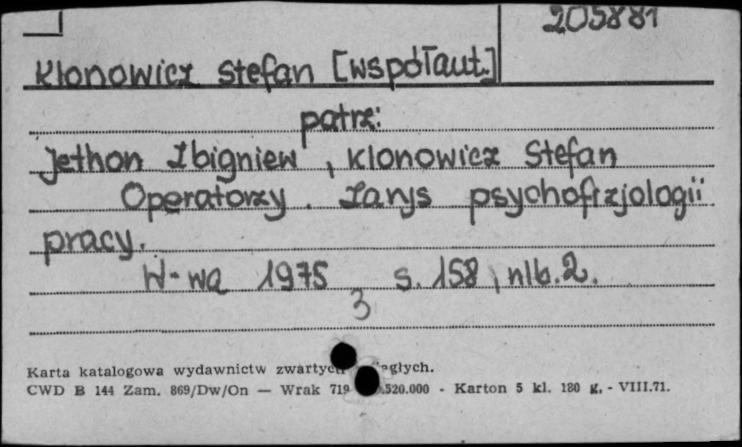 205881
Klonowicz Stefan [współaut.]
patrz:
Jethon Zbigniew, Klonowicz Stefan
Operatorzy. Zarys psychofizjologii
pracy.
W-wa 1975 s. 158, nlb. 2.
3
Karta katalogowa wydawnictw
CWD B 144 Zam. 869/Dw/On — Wrak 520.000 - Karton 5 kl. 180 g. - VIII.71.